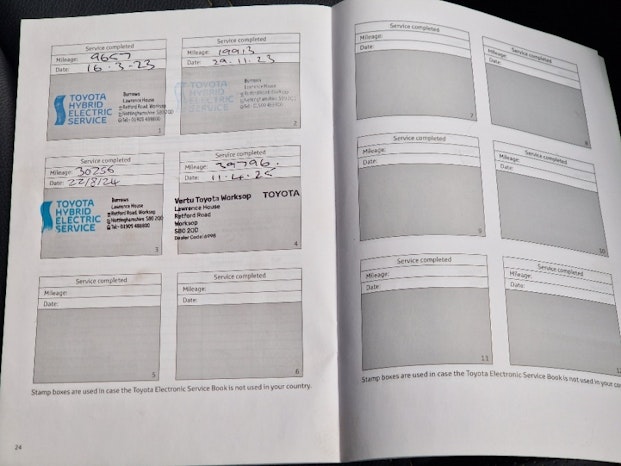 Service completed
Mileage: 9657
Date: 16.3.23
TOYOTA
HYBRID
ELECTRIC
SERVICE
Burrows
Lawrence House
Retford Road, Worksop
Nottinghamshire S80 2QD
1
Service completed
Mileage: 19913
Date: 29.11.23
TOYOTA
HYBRID
ELECTRIC
SERVICE
Burrows
Lawrence House
Retford Road, Worksop
2
Service completed
Mileage: 30256
Date: 22/8/24
TOYOTA
HYBRID
ELECTRIC
SERVICE
Burrows
Lawrence House
Retford Road, Worksop
Nottinghamshire S80 2QD
3
Service completed
Mileage: 39796.
Date: 11.4.25
Vertu Toyota Worksop TOYOTA
Lawrence House
Retford Road
Worksop
S80 2QD
4
Service completed
Mileage:
Date:
5
Service completed
Mileage:
Date:
6
Stamp boxes are used in case the Toyota Electronic Service Book is not used in your country.
24
Service completed
Mileage:
Date:
7
Service completed
Mileage:
Date:
8
Service completed
Mileage:
Date:
9
Service completed
Mileage:
Date:
10
Service completed
Mileage:
Date:
11
Service completed
Mileage:
Date:
Stamp boxes are used in case the Toyota Electronic Service Book is not used in your